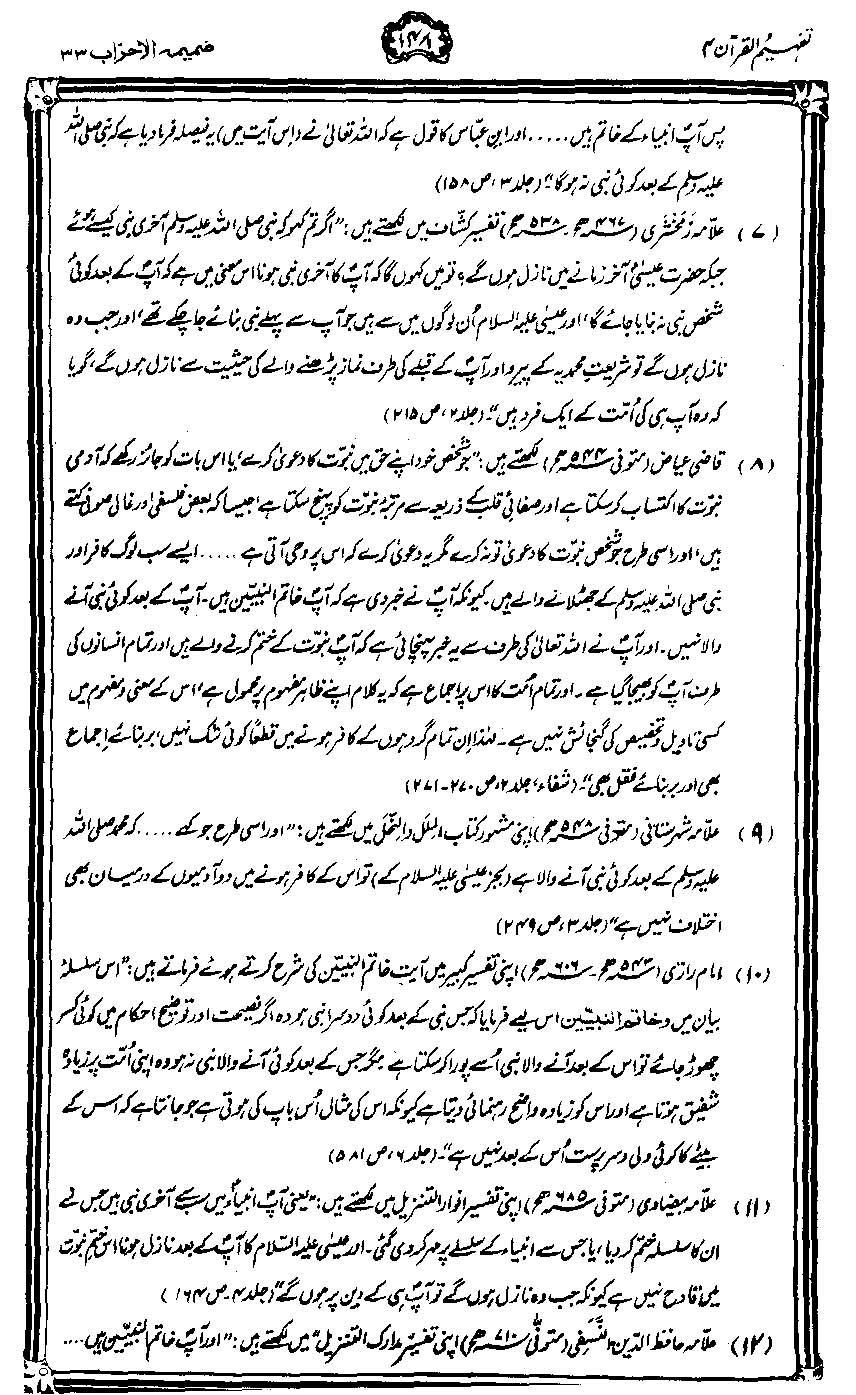 تفہیم القرآن ۴
۱۴۸
ضمیمہ الاحزاب ۳۳
پس آپؐ انبیاء کے خاتم ہیں ..... اور ابن عباس کا قول ہے کہ اللہ تعالیٰ نے (اِس آیت میں) یہ فیصلہ فرما دیا ہے کہ نبی صلی اللہ
علیہ وسلم کے بعد کوئی نبی نہ ہوگا" (جلد ۳، ص ۱۵۸)
(۷) علّامہ زَمَخْشَری (۴۶۷ھ ۔ ۵۳۸ھ) تفسیر کشّاف میں لکھتے ہیں: "اگر تم کہو کہ نبی صلی اللہ علیہ وسلم آخری نبی کیسے ہوئے
جبکہ حضرت عیسیٰؑ آخر زمانے میں نازل ہوں گے؟ تو میں کہوں گا کہ آپؐ کا آخری نبی ہونا اس معنی میں ہے کہ آپؐ کے بعد کوئی
شخص نبی نہ بنایا جائے گا، اور عیسیٰ علیہ السلام اُن لوگوں میں سے ہیں جو آپ سے پہلے نبی بنائے جا چکے تھے، اور جب وہ
نازل ہوں گے تو شریعتِ محمدیہ کے پیرو اور آپؐ کے قبلے کی طرف نماز پڑھنے والے کی حیثیت سے نازل ہوں گے، گویا
کہ وہ آپ ہی کی اُمّت کے ایک فرد ہیں"۔ (جلد ۲، ص ۲۱۵)
(۸) قاضی عیاض (متوفی ۵۴۴ھ) لکھتے ہیں: "جو شخص خود اپنے حق میں نبوّت کا دعویٰ کرے، یا اس بات کو جائز رکھے کہ آدمی
نبوّت کا اکتساب کر سکتا ہے اور صفائی قلب کے ذریعہ سے مرتبۂ نبوّت کو پہنچ سکتا ہے، جیسا کہ بعض فلسفی اور غالی صوفی کہتے
ہیں، اور اسی طرح جو شخص نبوّت کا دعویٰ تو نہ کرے مگر یہ دعویٰ کرے کہ اس پر وحی آتی ہے ..... ایسے سب لوگ کافر اور
نبی صلی اللہ علیہ وسلم کے جھٹلانے والے ہیں۔ کیونکہ آپؐ نے خبر دی ہے کہ آپؐ خاتم النبیّین ہیں۔ آپؐ کے بعد کوئی نبی آنے
والا نہیں۔ اور آپؐ نے اللہ تعالیٰ کی طرف سے یہ خبر پہنچائی ہے کہ آپؐ نبوّت کے ختم کرنے والے ہیں اور تمام انسانوں کی
طرف آپؐ کو بھیجا گیا ہے۔ اور تمام اُمّت کا اس پر اجماع ہے کہ یہ کلام اپنے ظاہر مفہوم پر محمول ہے، اس کے معنی و مفہوم میں
کسی تاویل و تخصیص کی گنجائش نہیں ہے۔ لہٰذا اِن تمام گروہوں کے کافر ہونے میں قطعًا کوئی شک نہیں، بربنائے اِجماع
بھی اور بربنائے نقل بھی"۔ (شفاء، جلد ۲، ص ۲۷۰-۲۷۱)
(۹) علّامہ شہرستانی (متوفی ۵۴۸ھ) اپنی مشہور کتاب المِلَل والنِّحَل میں لکھتے ہیں: "اور اسی طرح جو کہے ..... کہ محمد صلی اللہ
علیہ وسلم کے بعد کوئی نبی آنے والا ہے (بجز عیسیٰ علیہ السلام کے) تو اس کے کافر ہونے میں دو آدمیوں کے درمیان بھی
اختلاف نہیں ہے" (جلد ۳، ص ۲۴۹)
(۱۰) امام رازی (۵۴۳ھ ۔ ۶۰۶ھ) اپنی تفسیر کبیر میں آیتِ خاتم النبیّین کی شرح کرتے ہوئے فرماتے ہیں: "اس سلسلۂ
بیان میں وخاتم النبیّین اس لیے فرمایا کہ جس نبی کے بعد کوئی دوسرا نبی ہو وہ اگر نصیحت اور توضیحِ احکام میں کوئی کسر
چھوڑ جائے تو اس کے بعد آنے والا نبی اُسے پورا کر سکتا ہے۔ مگر جس کے بعد کوئی آنے والا نبی نہ ہو وہ اپنی اُمّت پر زیادہ
شفیق ہوتا ہے اور اس کو زیادہ واضح رہنمائی دیتا ہے کیونکہ اس کی مثال اُس باپ کی ہوتی ہے جو جانتا ہے کہ اس کے
بیٹے کا کوئی ولی و سرپرست اُس کے بعد نہیں ہے"۔ (جلد ۶، ص ۵۸۱)
(۱۱) علّامہ بیضاوی (متوفی ۶۸۵ھ) اپنی تفسیر انوار التنزیل میں لکھتے ہیں: "یعنی آپؐ انبیاء میں سب سے آخری نبی ہیں جس نے
ان کا سلسلہ ختم کر دیا، یا جس سے انبیاء کے سلسلے پر مہر کر دی گئی۔ اور عیسیٰ علیہ السّلام کا آپؐ کے بعد نازل ہونا اس ختمِ نبوّت
میں قادح نہیں ہے کیونکہ جب وہ نازل ہوں گے تو آپؐ ہی کے دین پر ہوں گے" (جلد ۴۔ ص ۱۶۴)
(۱۲) علّامہ حافظ الدین النَّسَفِی (متوفی ۷۱۰ھ) اپنی تفسیر "مدارک التنزیل" میں لکھتے ہیں: "اور آپؐ خاتم النبیّین ہیں ....